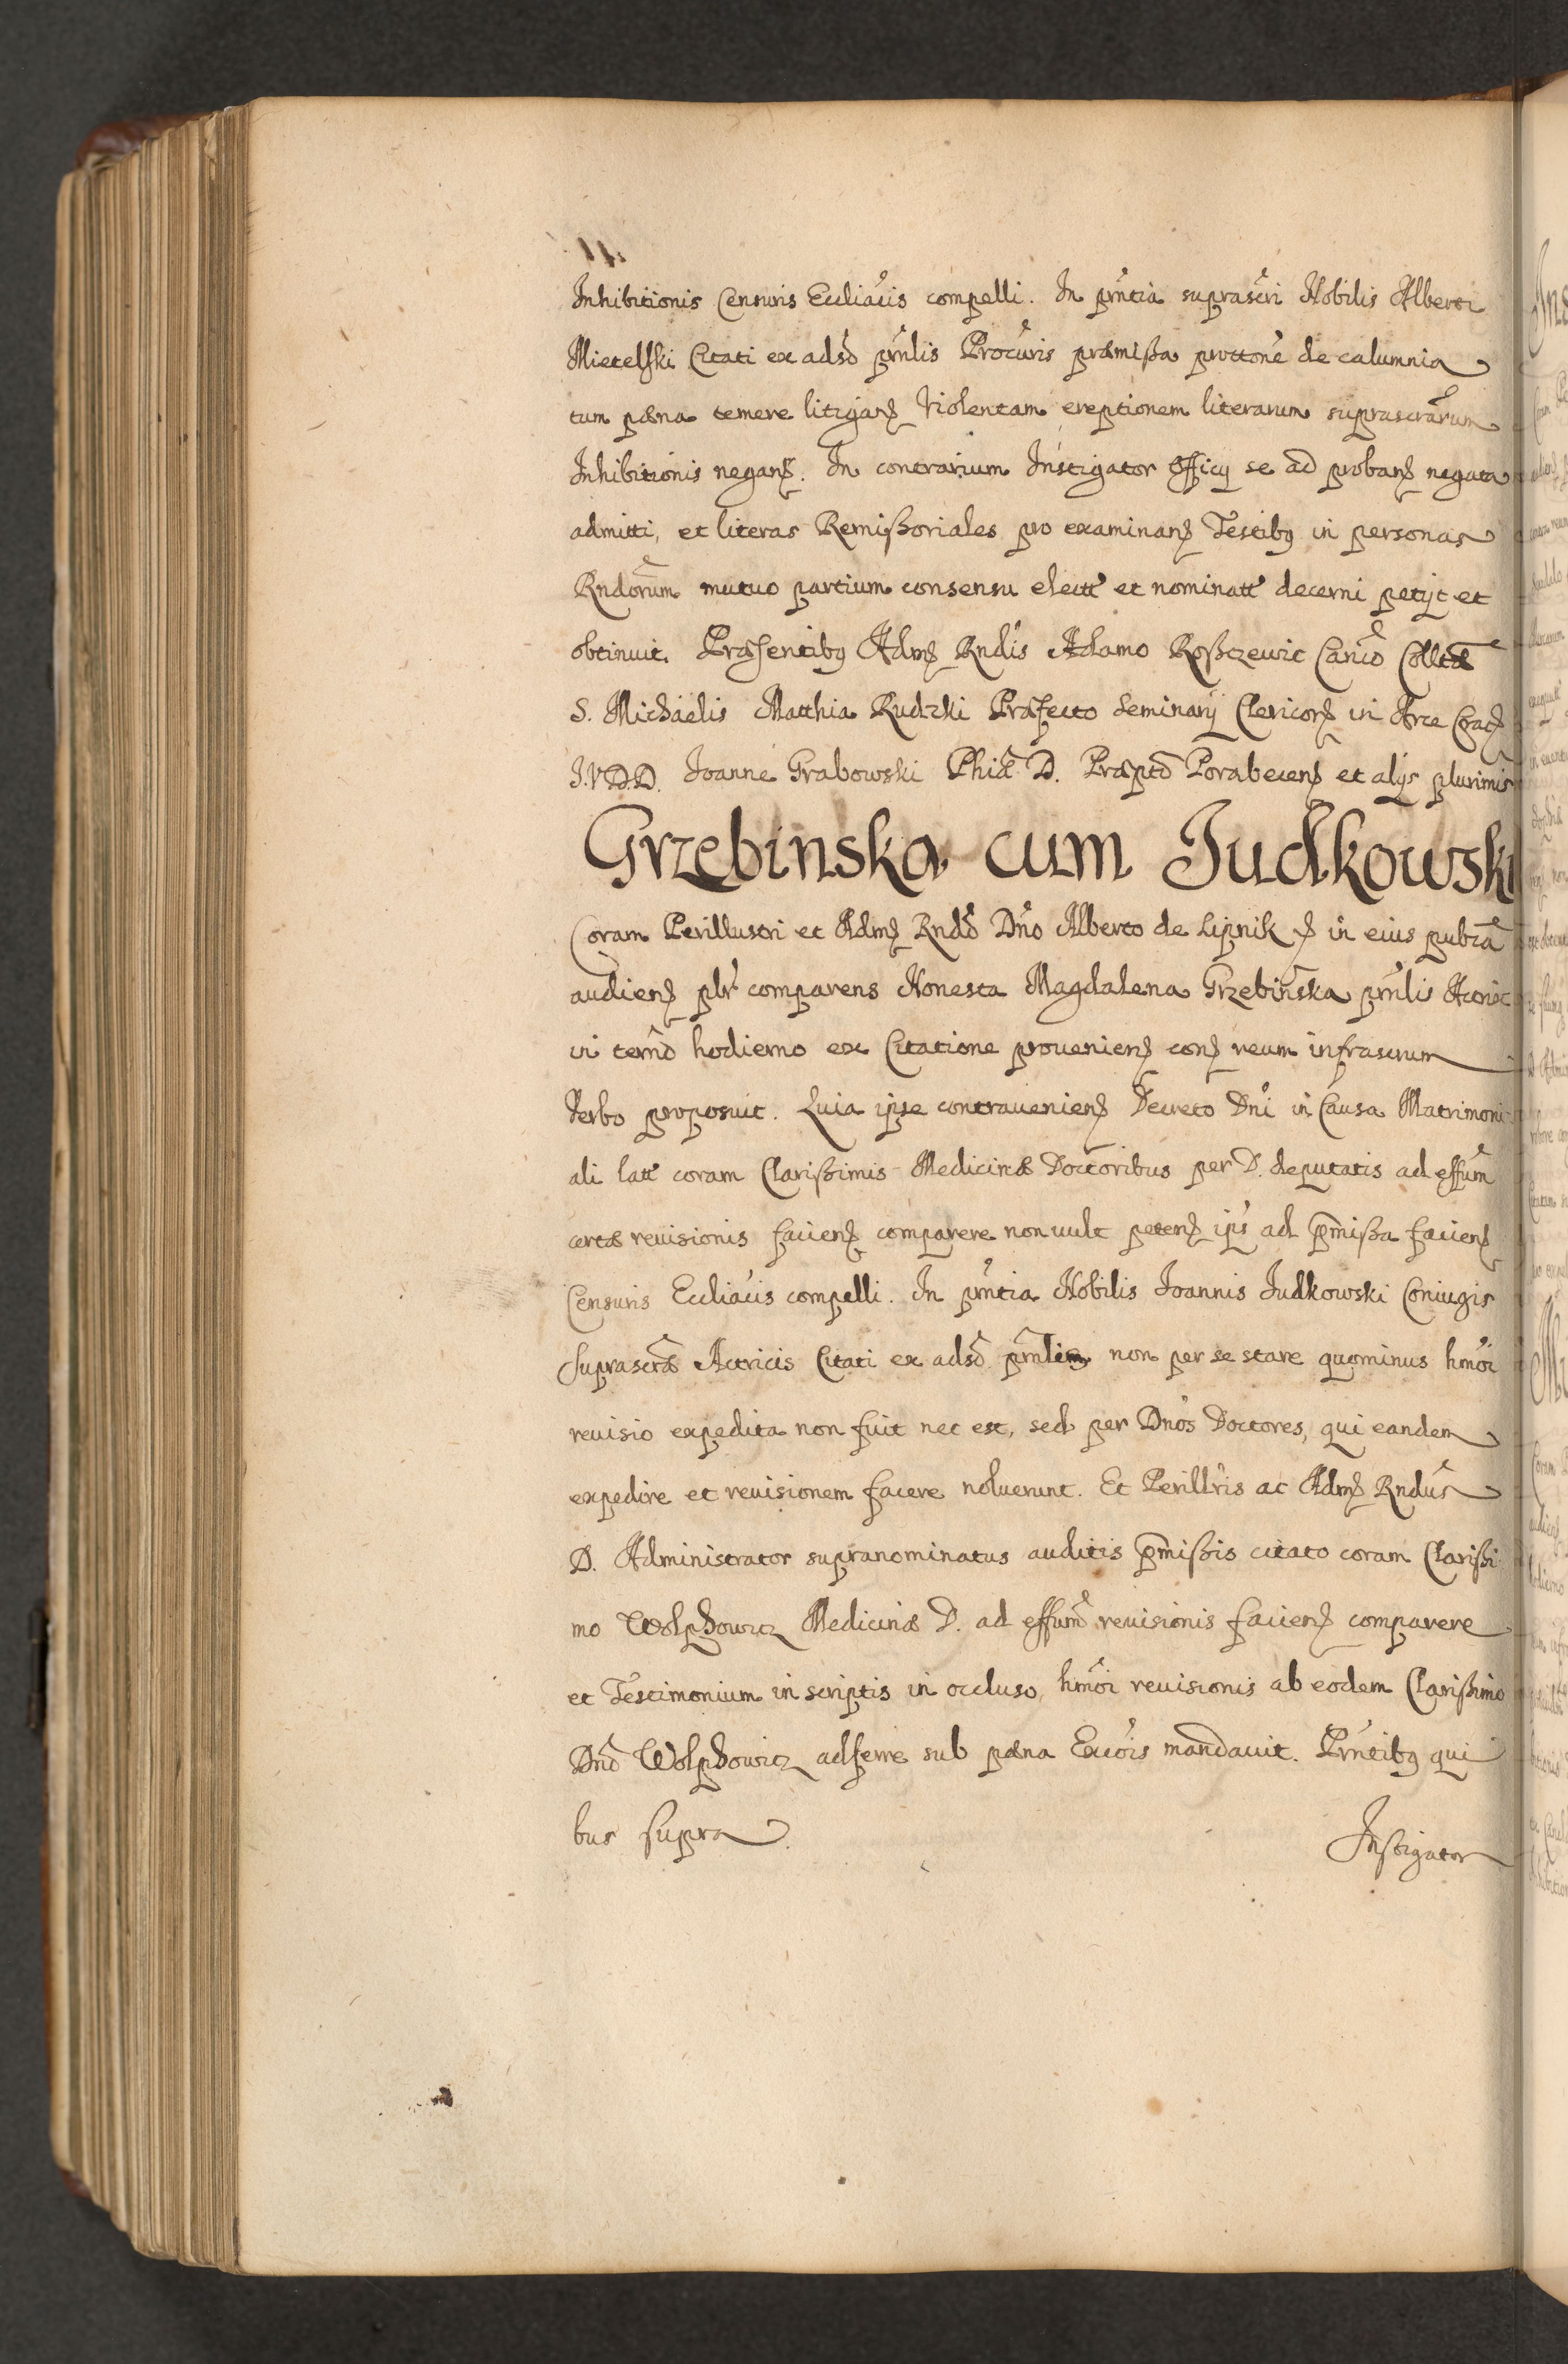 Inhibitionis Censuris Ecclia͠cis compelli. In pn͠tia suprascri Nobilis Alberti
Mietelski Citati ex adso pn͠lis Procuris præmissa prottone de calumnia
tum pæna temere litigan͠ Violentam ereptionem literarum suprascrarum
Inhibitionis negan͠. In contrarium Instigator Officy se ad proban͠ negata
admitti, et literas Remissoriales pro examinan͠ Testibq in personas
Rndorum mutuo partium consensu electt et nominatt decerni petyt et
obtinuit. Præsentibq Adm͠ Rndis Adamo Roszczewic Canco Colltæ
S. Michaelis Matthia Rudzki Præfecto Seminarij Clericor͠ in Arce Crac͠
J.V.D.D. Joanne Grabowski Phiæ D. Præptō Porabecen͠ et alijs plurimis
Grzebinska cum Judkowski
Coram Perillustri et Adm͠ Rndo Dno Alberto de Lipnik in eius pubca
audien͠ plr comparens Honesta Magdalena Grzebinska pn͠lis
in termo hodierno ex Citatione prouenien͠ con͠ reum infrascrum
Verbo proposuit. Quia ipse contrauenien͠ Decreto Dni in Causa Matrimoni
ali latt coram Clarissimis Medicinæ Doctoribus per D. deputatis ad effum
certæ reuisionis facien͠ comparere non uult peten͠ ips ad pmissa facien͠
Censuris Ecclia͠cis compelli. In pn͠tia Nobilis Joannis Judkowski Coniugis
suprascræ Actricis Citati ex adso non per se stare quominus hmoi
reuisio expedita non fuit nec est, sed per Dnos Doctores, qui eandem
expedire et reuisionem facere noluerunt. Et Perillris ac Adm͠ Rndus
D. Administrator supranominatus auditis pmissis citato coram Clarissi
mo Wolphowicz Medicinæ D. ad effum reuisionis facien͠ comparere
et Testimonium in scriptis in occluso hmoi reuisionis ab eodem Clarissimo
Dno Wolphowicz adferre sub pæna Excois mandauit. Pn͠tibq qui
bus supra.
Instigator